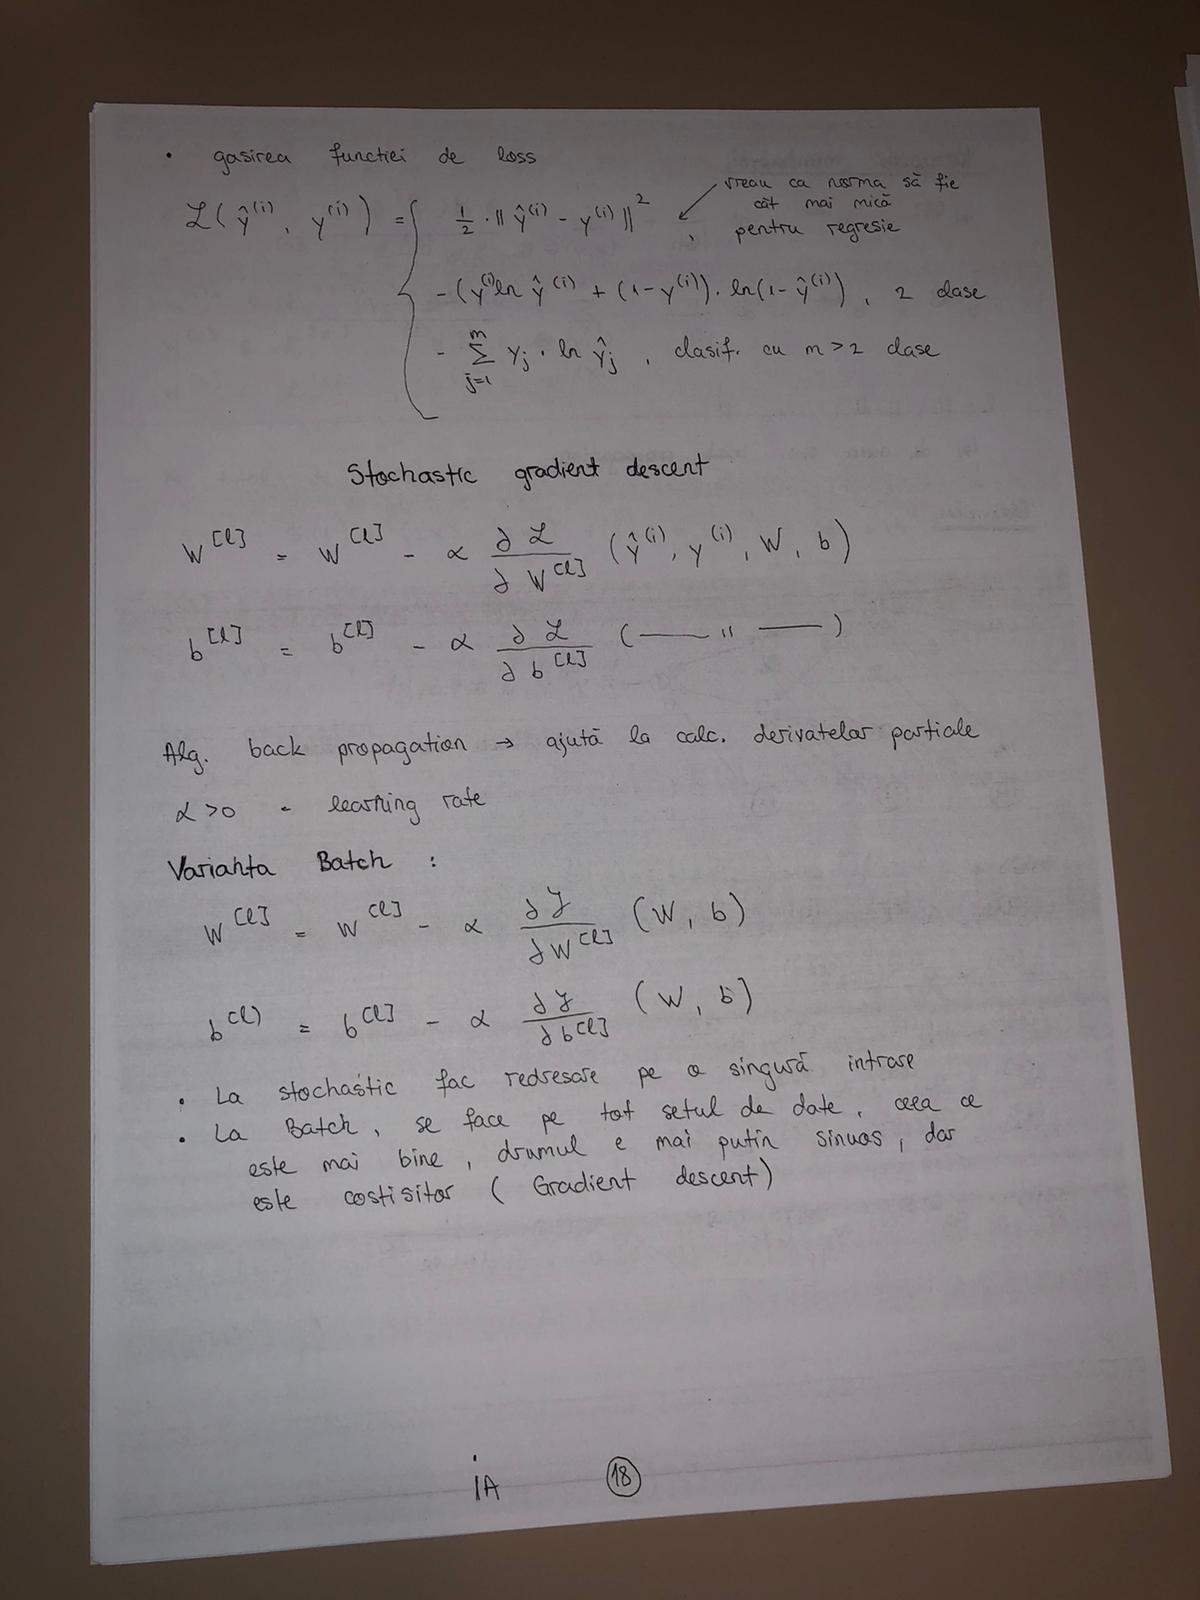 • gasirea functiei de loss
vreau ca norma să fie
cât mai mică
pentru regresie
L(ŷ^(i), y^(i)) = { 1/2 · || ŷ^(i) - y^(i) ||^2 ,
- (y^(i) ln ŷ^(i) + (1 - y^(i)) · ln(1 - ŷ^(i)) , 2 clase
- Σ_{j=1}^{m} y_j · ln ŷ_j , clasif. cu m > 2 clase
Stochastic gradient descent
W^[l] = W^[l] - α ∂L/∂W^[l] (ŷ^(i), y^(i), W, b)
b^[l] = b^[l] - α ∂L/∂b^[l] (—— " ——)
Alg. back propagation → ajută la calc. derivatelor partiale
α > 0 - learning rate
Varianta Batch :
W^[l] = W^[l] - α ∂J/∂W^[l] (W, b)
b^(l) = b^[l] - α ∂J/∂b^[l] (W, b)
• La stochastic fac redresare pe o singură intrare
• La Batch, se face pe tot setul de date, ceea ce
este mai bine, drumul e mai putin sinuos, dar
este costisitor (Gradient descent)
IA 18